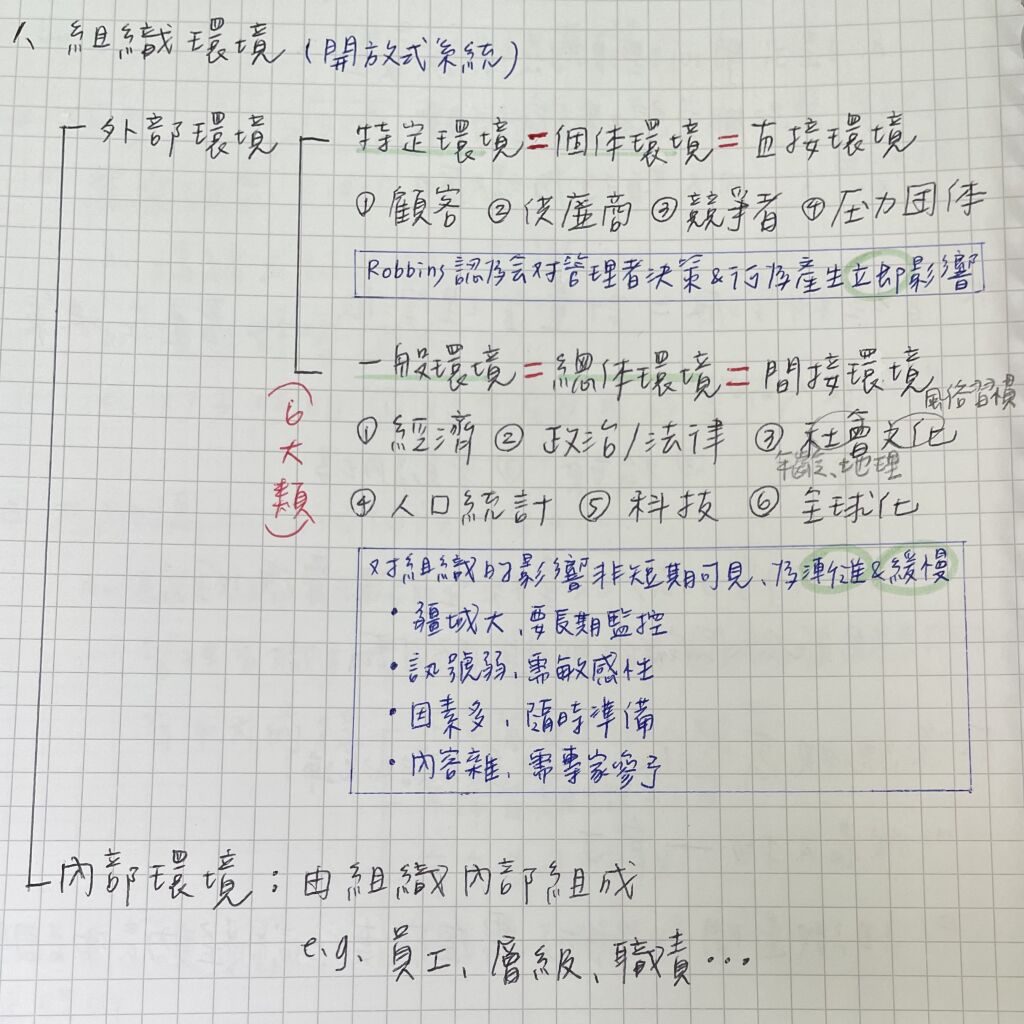 1、組織環境(開放式系統)
外部環境
特定環境=個体環境=直接環境
①顧客 ②供應商 ③競爭者 ④圧力団体
Robbins認為会对管理者決策&行為產生立即影響
一般環境=總体環境=間接環境
風俗習慣
(6大類)
①經濟 ②政治/法律 ③社會文化
年齡、地理
④人口統計 ⑤科技 ⑥全球化
对組織的影響非短期可見、為漸進&緩慢
•疆域大、要長期監控
•訊號弱、需敏感性
•因素多、隨時準備
•內容雜、需專家參予
內部環境:由組織內部組成
e.g、員工、層級、職責...